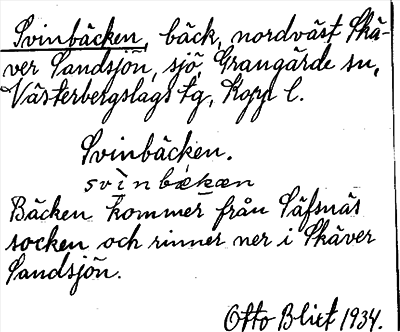 Svinbäcken, bäck, nordväst Skä-
ver Sandsjön, sjö, Grangärde sn,
Västerbergslags tg, Kopp l.
Svinbäcken.
svìnbækæn
Bäcken kommer från Säfsnäs
socken och rinner ner i Skäver
Sandsjön.
Otto Blixt 1934.